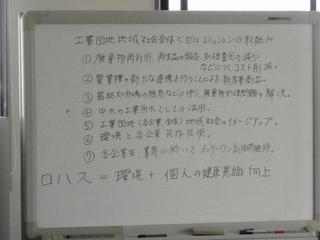 工業団地地域社会全体でゼロエミッションの取組み
① 廃棄物再利用、再生品の販売、処理費用の減少
などにつくコスト削減。
② 異業種の新たな連携を行うことによる、新産業創出。
③ 最終処分場の限界などに伴う、廃棄物処理問題の解決。
④ 中水の工業用水としての活用。
⑤ 工業団地(各企業、全体)地域社会のイメージアップ。
⑥ 環境と各企業共存共栄。
⑦ 各企業共、業界に於いてオンリーワン技術
ロハス = 環境 + 個人の健康意識向上